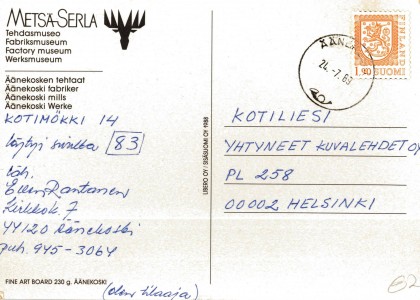 METSÄ-SERLA
Tehdasmuseo
Fabriksmuseum
Factory museum
Werksmuseum
Äänekosken tehtaat
Äänekoski fabriker
Äänekoski mills
Äänekoski Werke
KOTIMÖKKI 14
löytyi sivulta 83
Läh.
Eeva Rantanen
Kirkkok. 7
44120 Äänekoski
puh. 945-3064
FINE ART BOARD 230 g. ÄÄNEKOSKI
(olen tilaaja)
LIBERO OY / SISÄSUOMI OY 1988
ÄÄNEK
24.-7.89
FINLAND
1,90 SUOMI
KOTILIESI
YHTYNEET KUVALEHDET OY
PL 258
00002 HELSINKI